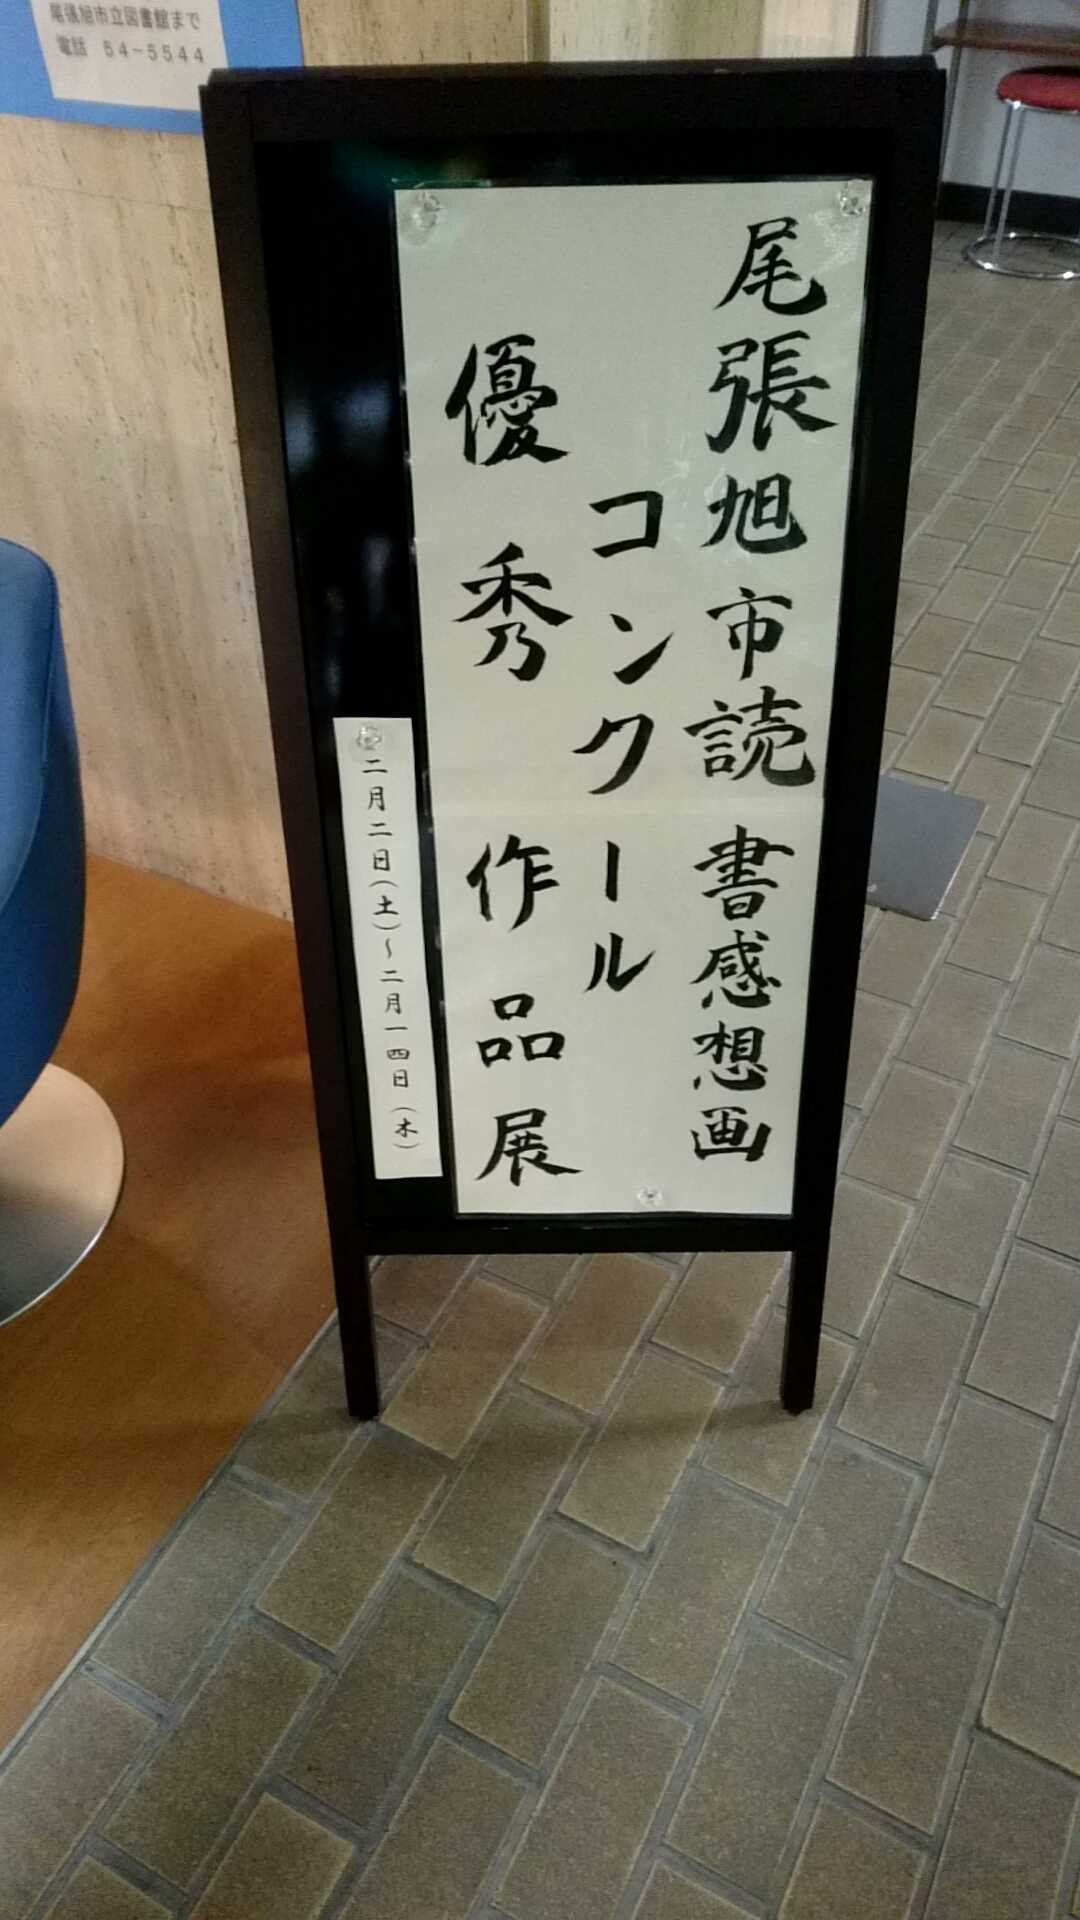 尾張旭市立図書館まで
電話 54-5544
尾張旭市読書感想画
コンクール
優秀作品展
二月二日(土)~二月一四日(木)